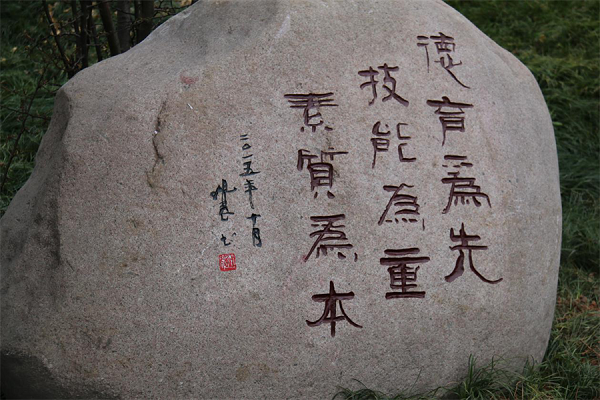 德育爲先
技能爲重
素質爲本
二〇一五年十月